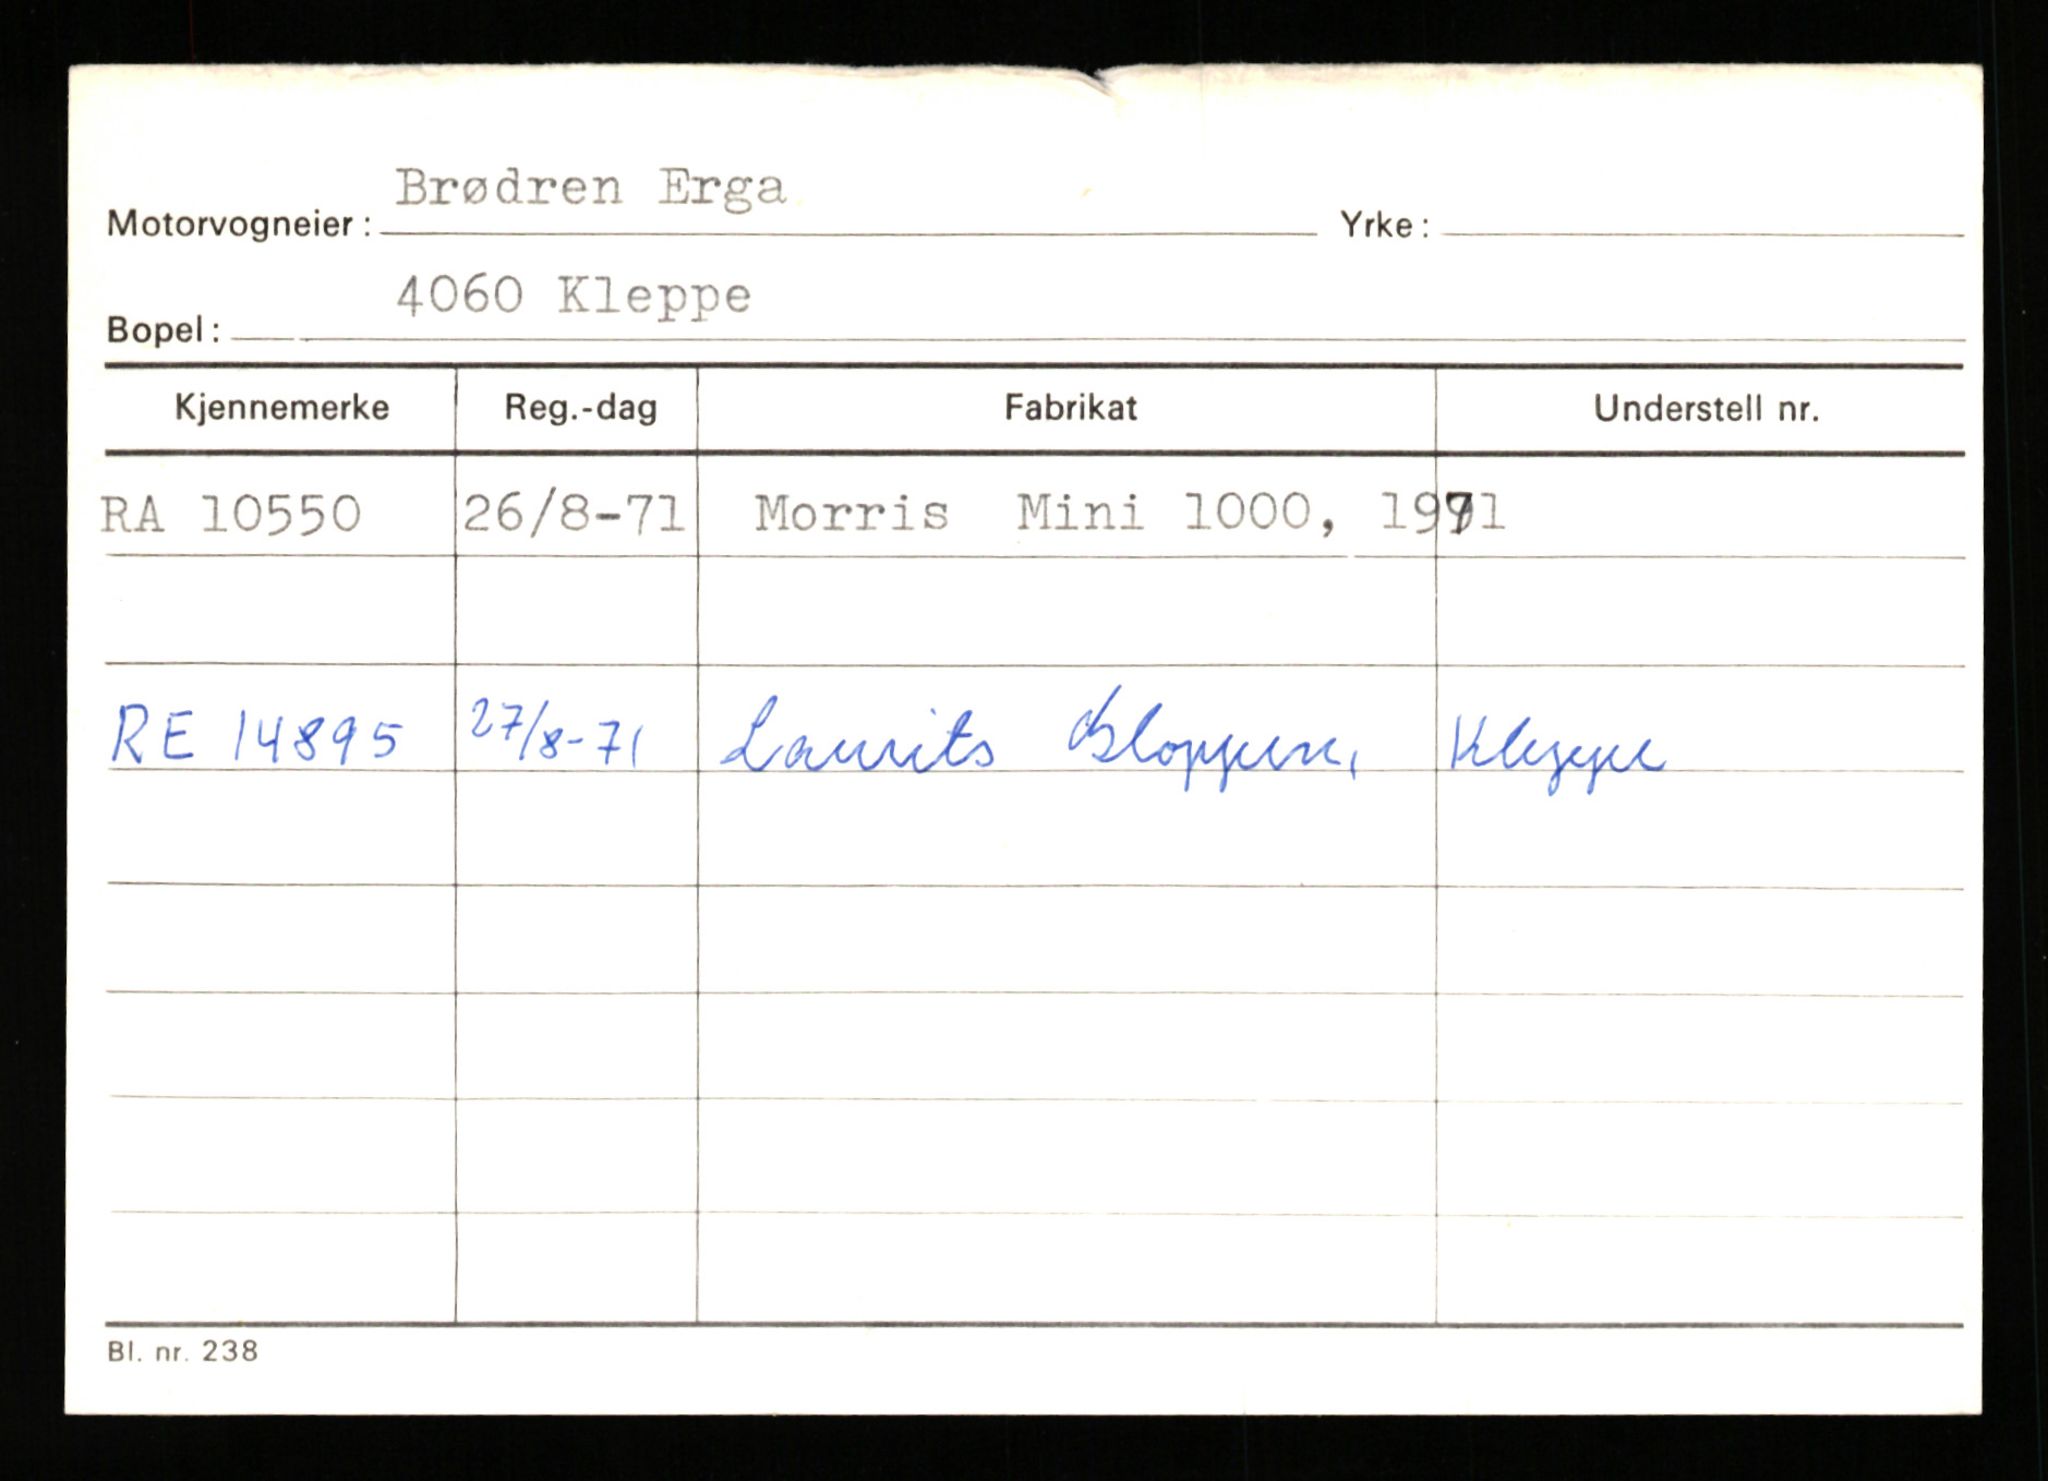 Brødren Erga
Motorvogneier: Yrke:
4060 Kleppe
Bopel:
Kjennemerke Reg.-dag Fabrikat Understell nr.
RA 10550 26/8-71 Morris Mini 1000, 1971
RE 14895 27/8-71 Laurits Kleppe
Bl. nr. 238